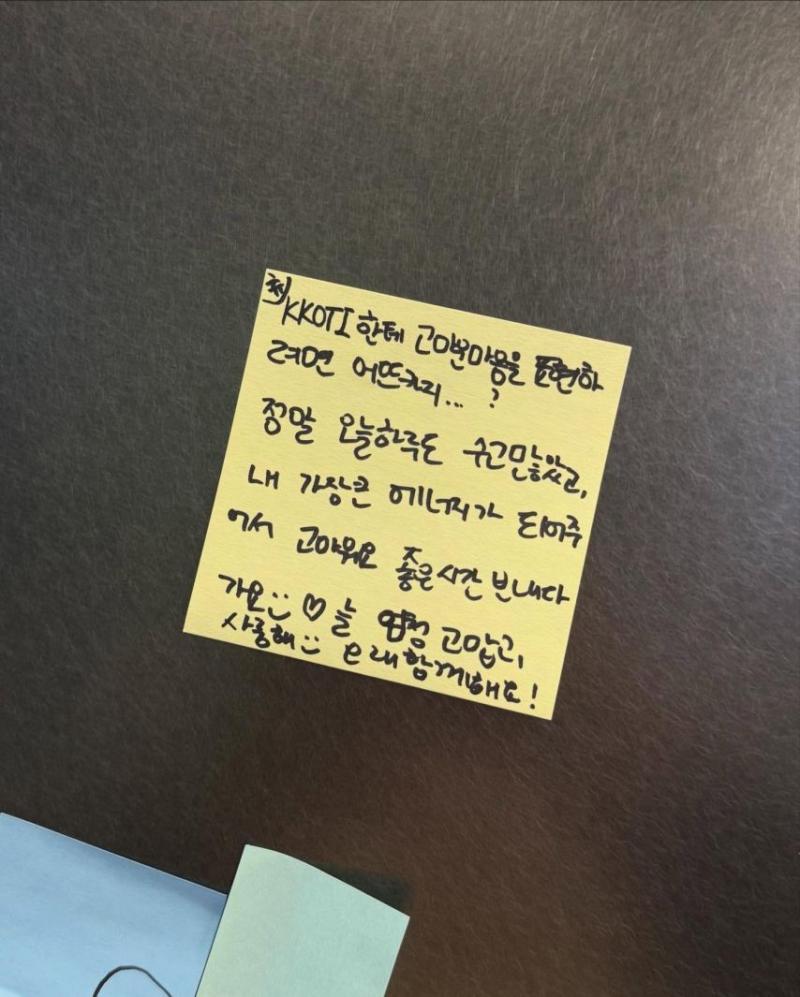 KKOTI한테 고마운마음을 표현하
려면 어뜨카지... ?
정말 오늘하루도 수고많았고,
내 가장큰 에너지가 되어주
어서 고마워요 좋은시간 보내다
가요 ♡ 늘 엄청 고맙고,
사랑해 오래 함께해요!